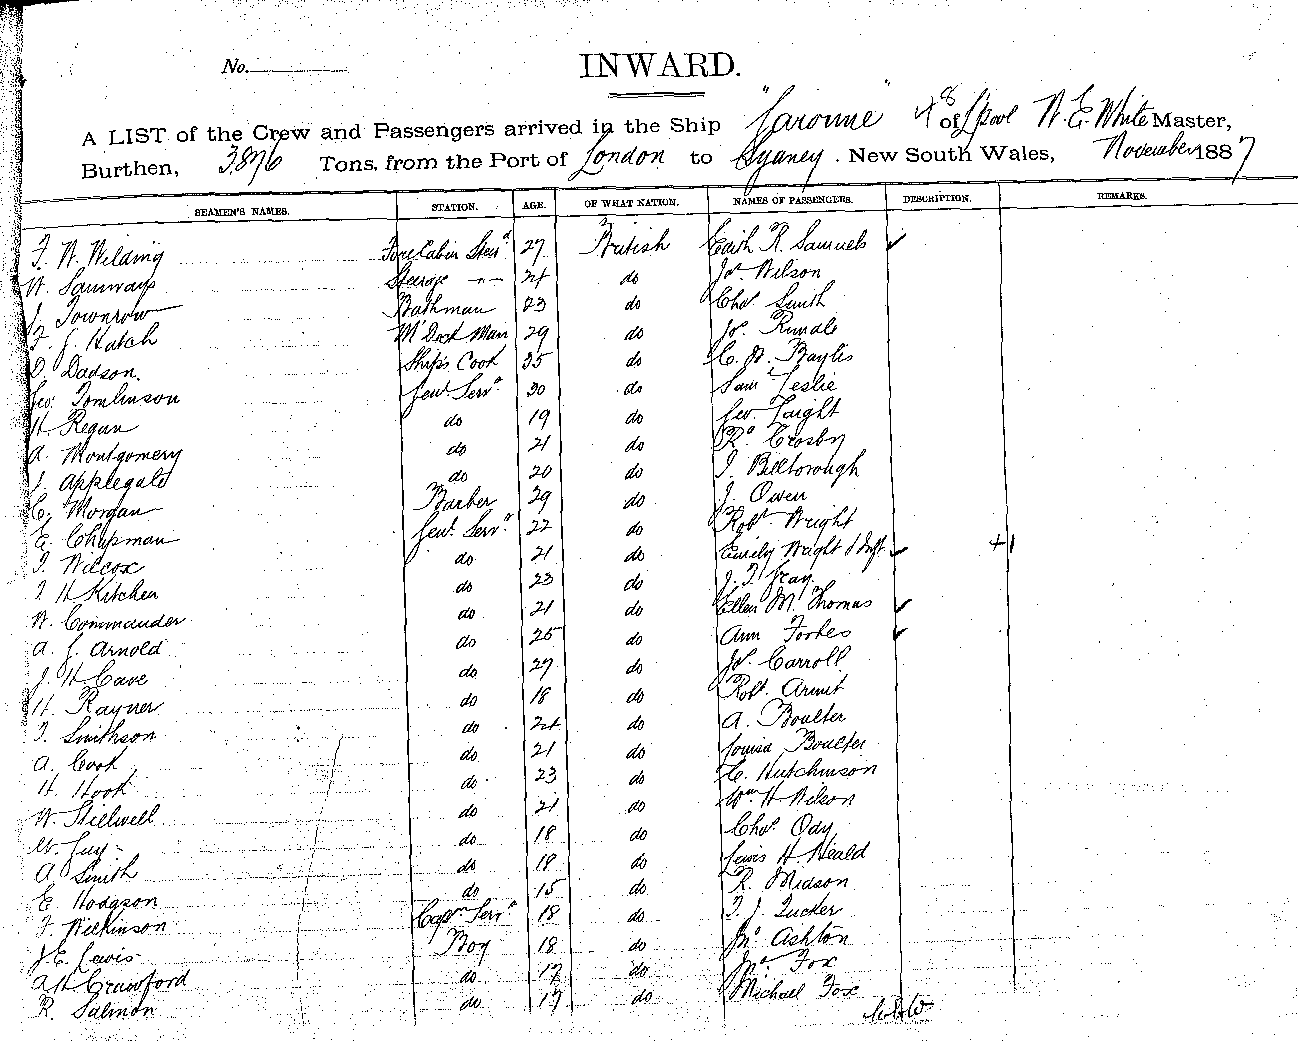 No.
INWARD.
A LIST of the Crew and Passengers arrived in the Ship "Garonne" of L'pool W. E. White Master,
Burthen, 3,876 Tons, from the Port of London to Sydney. New South Wales, November 1887
SEAMEN'S NAMES. STATION. AGE. OF WHAT NATION. NAMES OF PASSENGERS. DESCRIPTION. REMARKS.
F. W. Wilding Fore Cabin Stewd 27 British Edith R. Samuels ✓
W. Samways Steerage -"- 24 do Js. Wilson
J. Townrow Bathman 23 do Chas. Smith
F. J. Hatch Ms Deck Man 29 do
D. Dadson. Ship's Cook 35 do C. W. Baylis
Geo. Tomlinson Genl. Servt. 30 do Saml Leslie
H. Regan do 19 do Geo.
A. Montgomery do 21 do Crosby
J. Applegate do 20 do
C. Morgan Barber 29 do J. Owen
E. Chapman Genl. Servt. 22 do Robt. Wright
T. Wilcox do 21 do Emily Wright & Inft. ✓ +1
T. H. Kitchen do 23 do J. T. Gray.
W. Commander do 21 do Ellen M. Thomas ✓
A. J. Arnold do 25 do Ann Forbes ✓
J. H. Cave do 27 do Js. Carroll
H. Rayner do 18 do Robt.
T. Smithson do 24 do A. Boulter
A. Cook do 21 do Louisa Boulter
H. Hook do 23 do C. Hutchinson
W. Stilwell do 21 do Wm. H. Nelson
W. Guy do 18 do Chas. Ody
A. Smith do 18 do Lewis H. Heald
E. Hodgson do 15 do R. Midson
F. Wilkinson Capns Servt. 18 do T. J. Tucker
J. E. Lewis Boy 18 do Jno. Ashton
A. H. Crawford do 17 do Jno. Fox
R. Salmon do 17 do Michael Fox